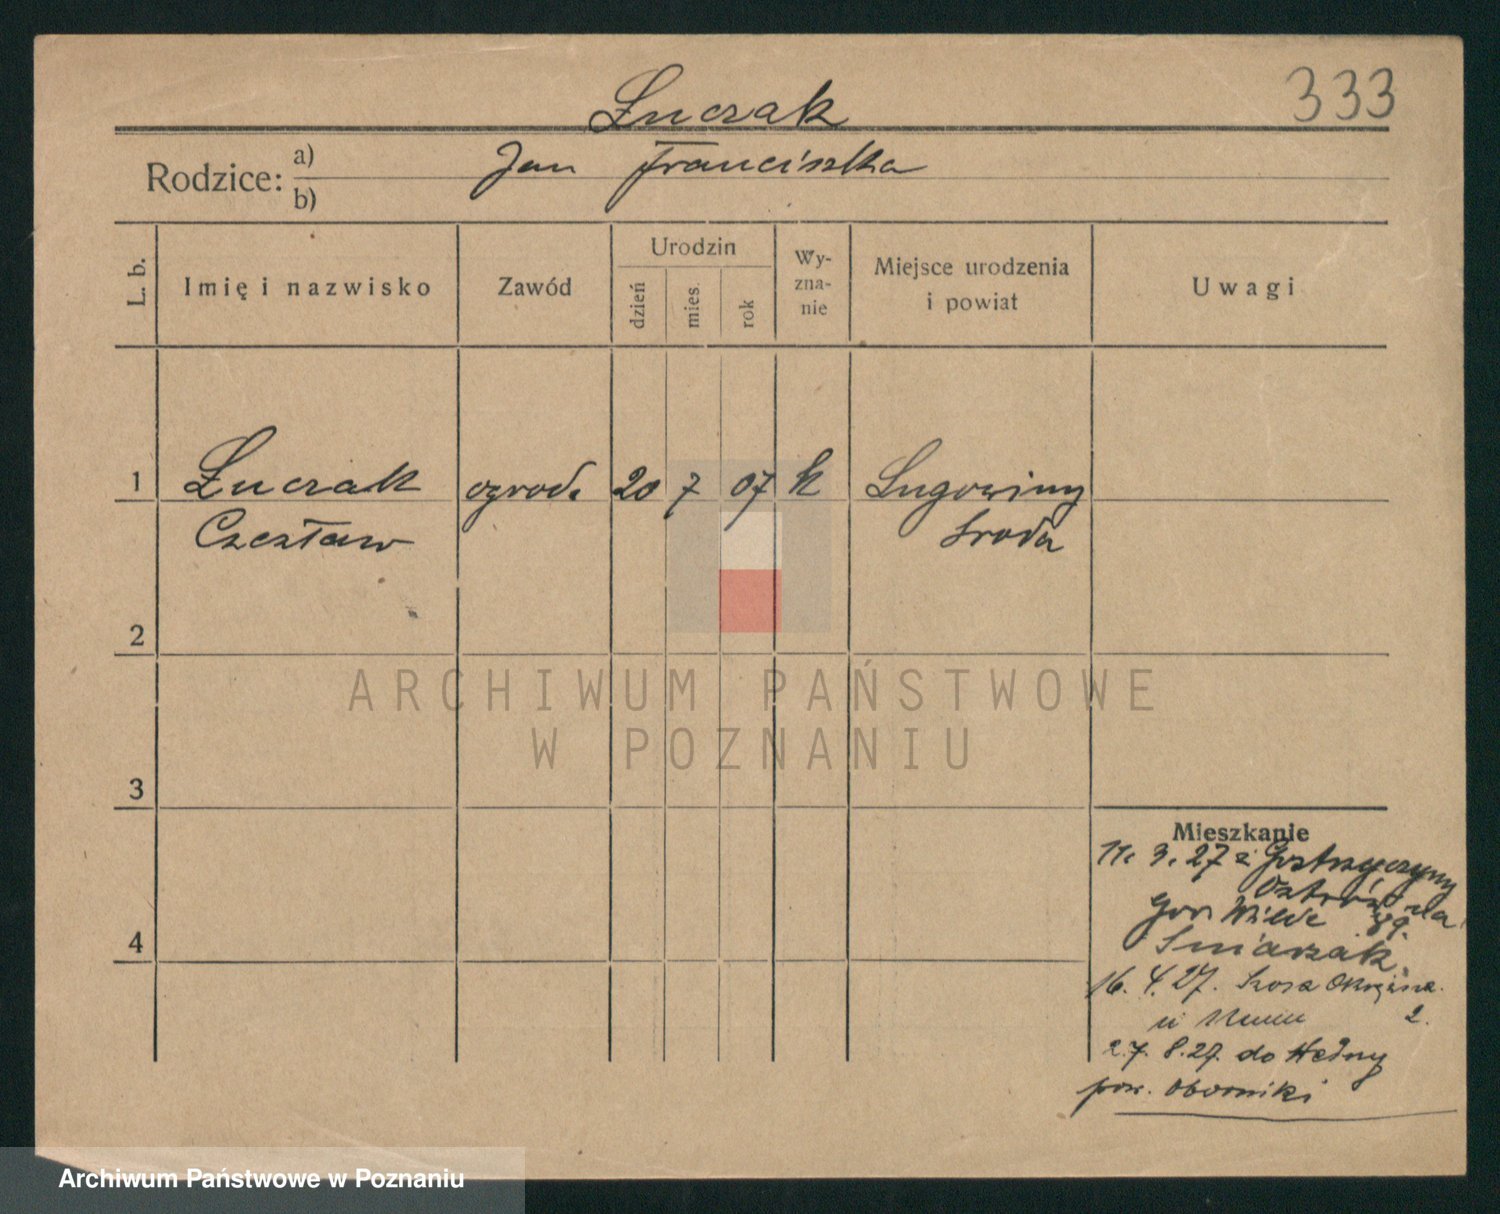 333
Łuczak
Rodzice: a) Jan Franciszka
b)
L. b.
Imię i nazwisko
Zawód
Urodzin
dzień
mies.
rok
Wy-
zna-
nie
Miejsce urodzenia
i powiat
Uwagi
1 Łuczak ogrod. 20 7 07 k Ługowiny
Czesław Środa
2
3
4
ARCHIWUM PAŃSTWOWE
W POZNANIU
Mieszkanie
11. 3. 27 z
Gór. Wilde 89.
16. 4. 27. Szosa Okrężna
2.
27. 8. 27. do
pow. Oborniki
Archiwum Państwowe w Poznaniu